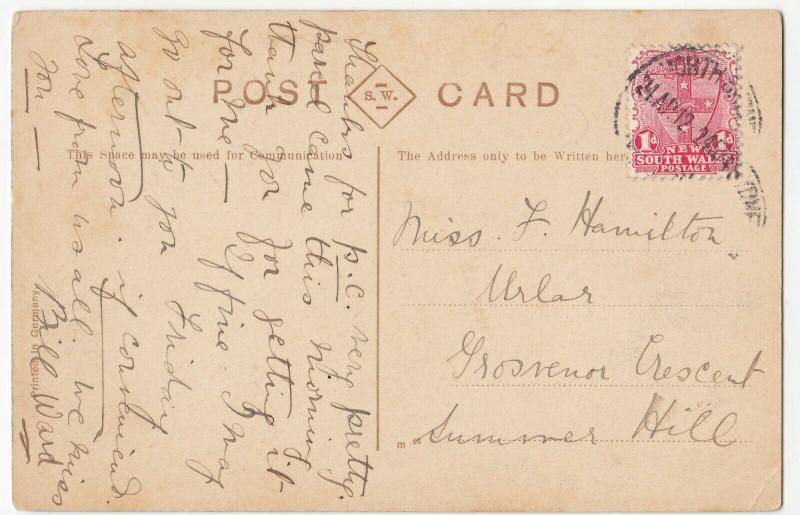 POST S. W. CARD
This Space may be used for Communication
The Address only to be Written here
Thanks for p.c. very pretty.
parcel came this morning
thank you for getting it
for me — If fine. I may
go out to you Friday
afternoon. if convenient.
Love from us all. We miss
you — Bill Ward
Miss. F. Hamilton
Urlar
Grosvenor Crescent
Summer Hill
1d 1d
NEW
SOUTH WALES
POSTAGE
NORTH
24 AP 12
Printed in Germany